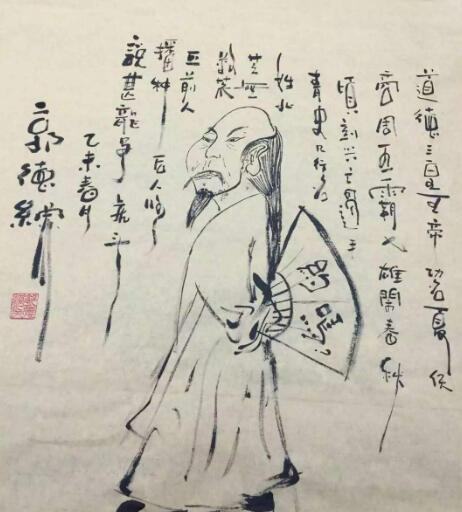 道德三皇五帝 功名夏侯
商周五霸七雄閙春秋
頃刻兴亡過手
青史几行名
姓北
芒無
数荒
丘前人
播种 后人收
說甚龍争虎斗
乙未春月
郭德綱